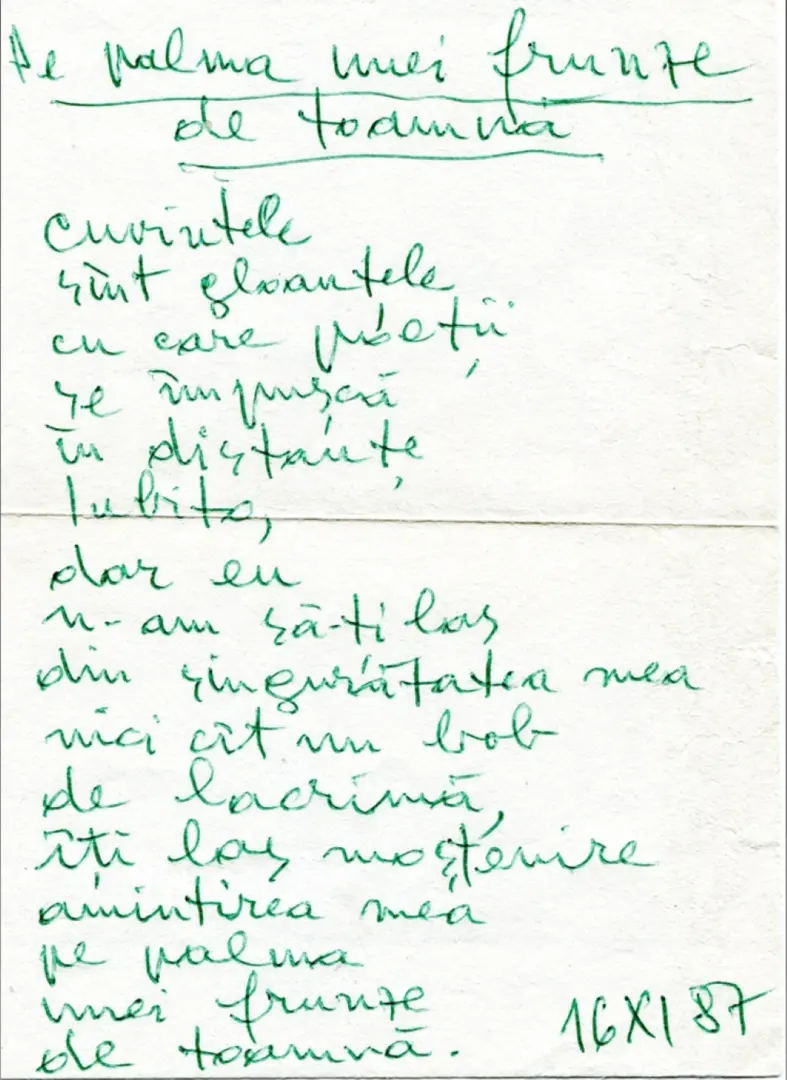 Pe palma unei frunze
de toamnă
cuvintele
sînt gloanțele
cu care poeții
se împușcă
în distanțe
Iubito,
dar eu
n-am să-ți las
din singurătatea mea
nici cît un bob
de lacrimă,
îți las moștenire
amintirea mea
pe palma
unei frunze
de toamnă.
16 XI 87